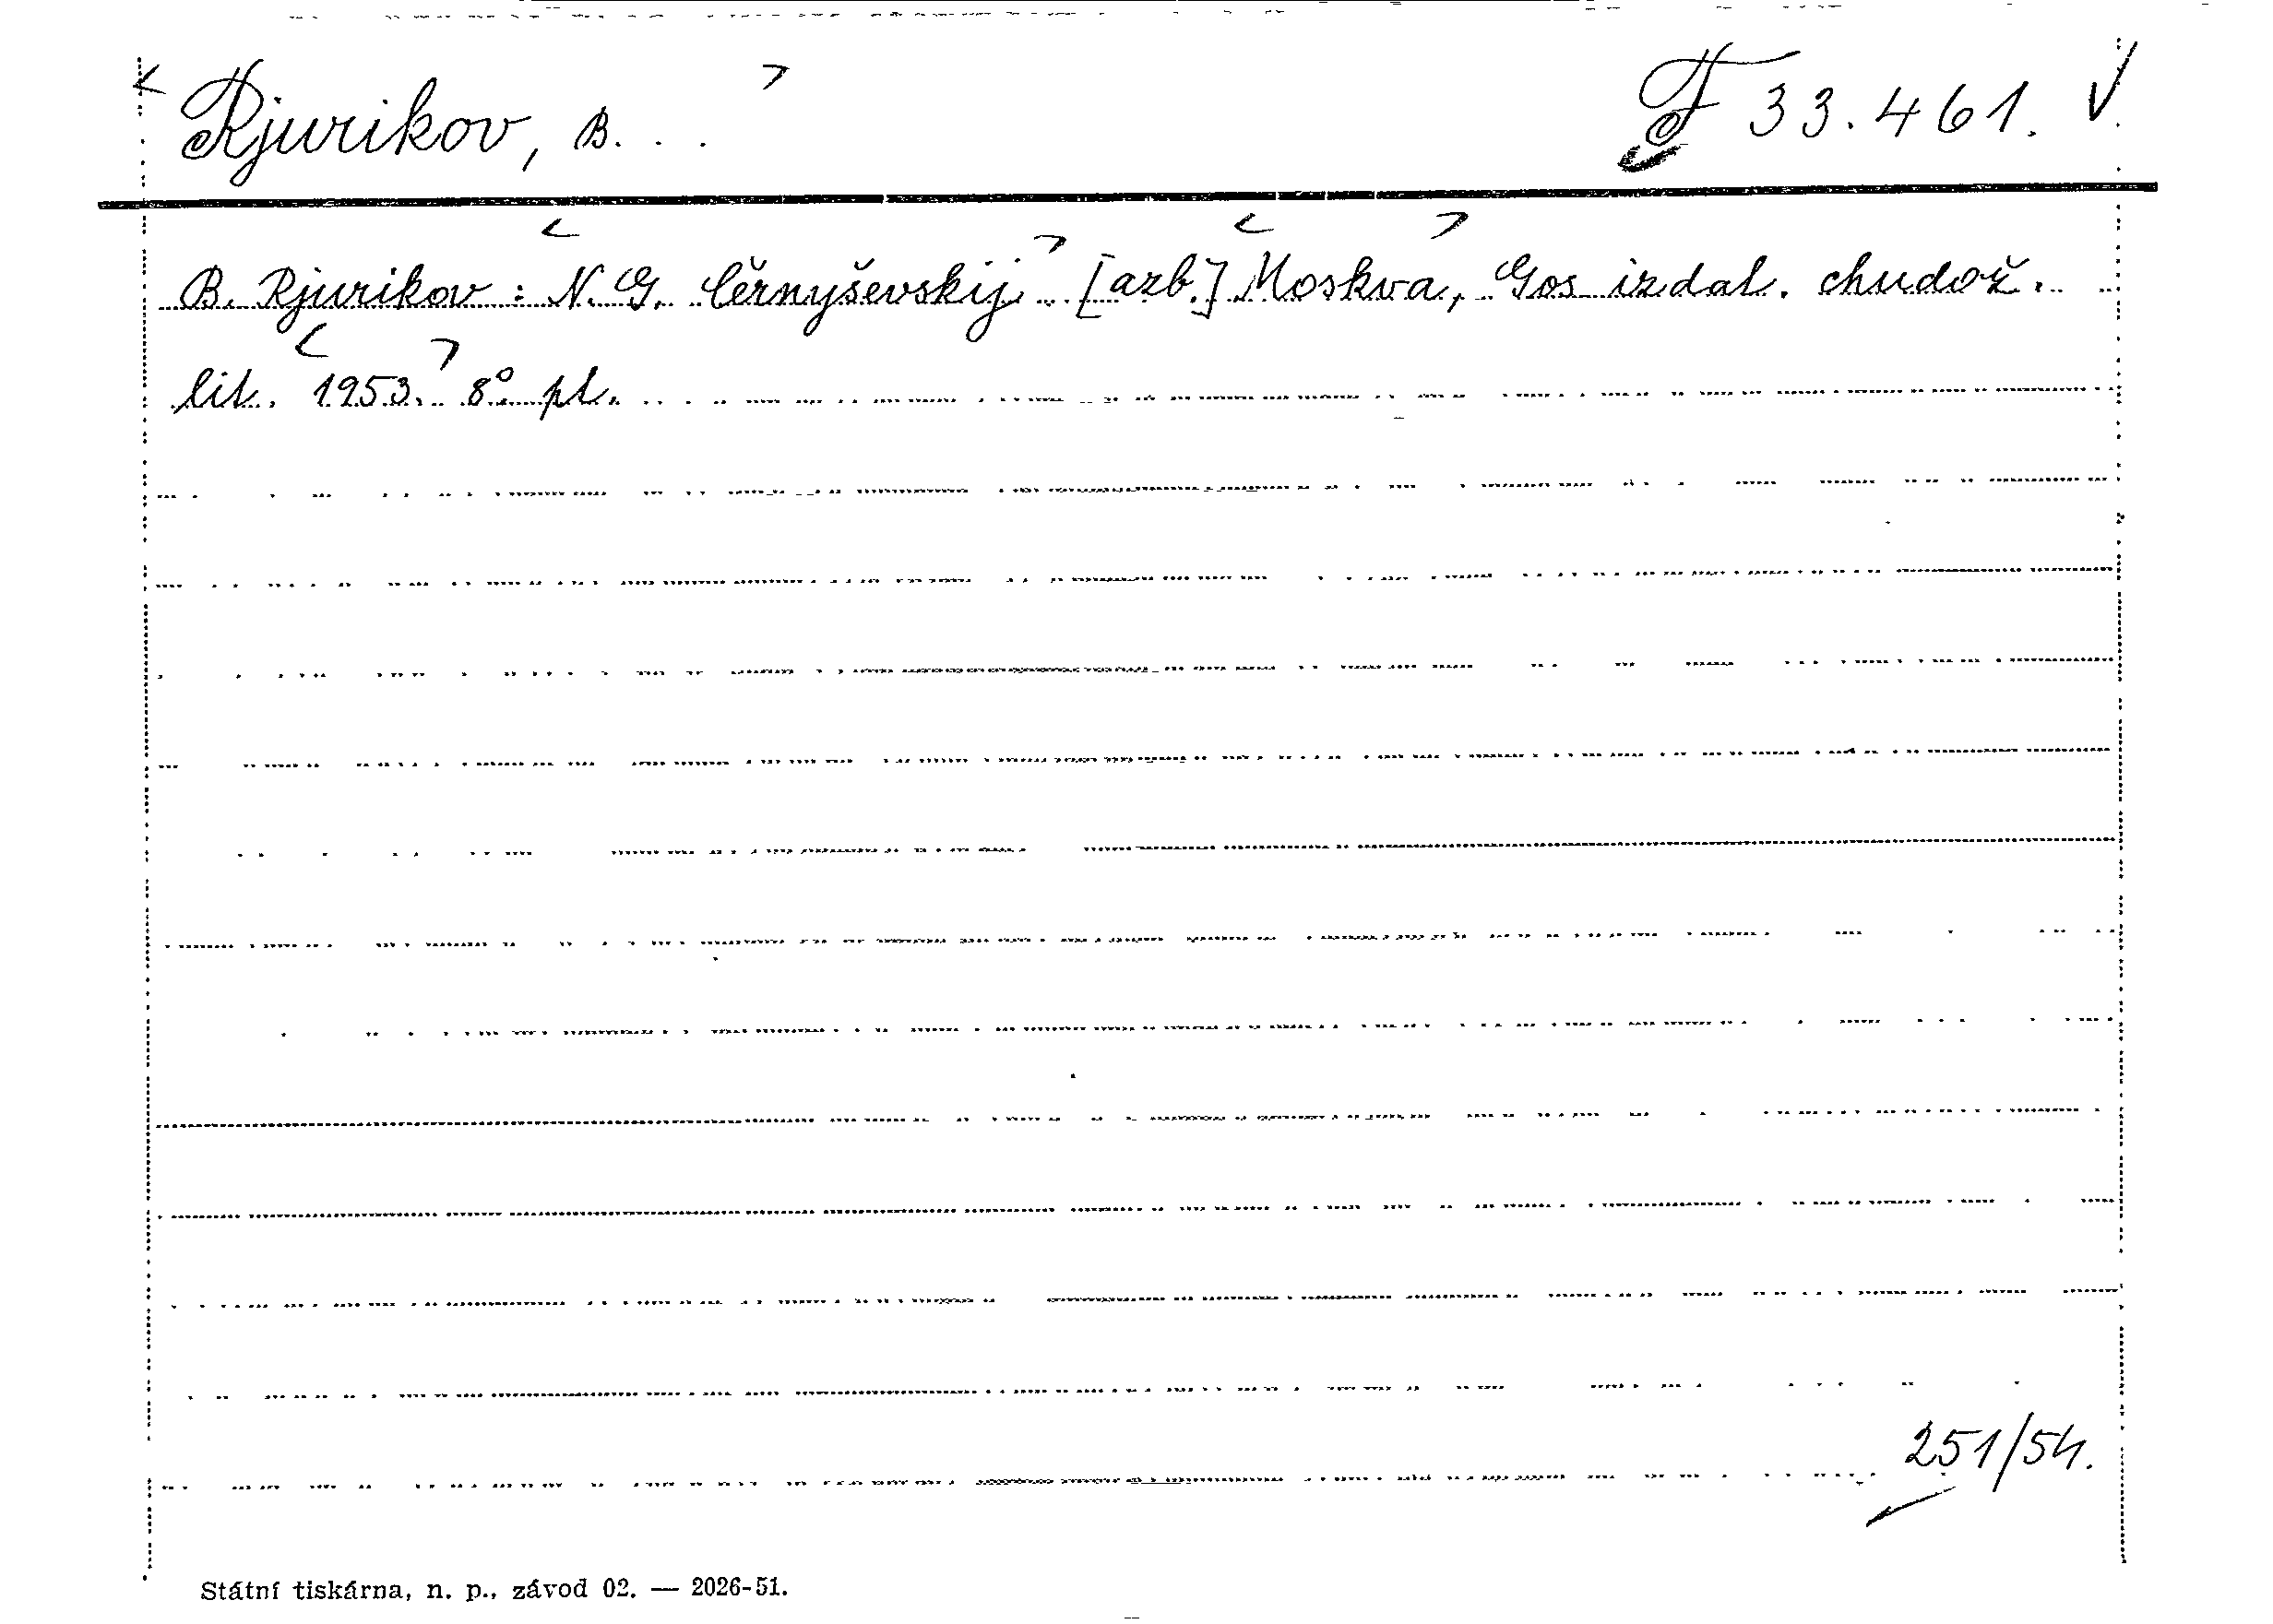 < Rjurikov, B. . . > F 33.461. √
B. Rjurikov: <N. G. Černyševskij> [azb.] <Moskva>, Gos izdat. chudož.
lit. <1953.> 8° pt.
251/54.
Státní tiskárna, n. p., závod 02. — 2026-51.